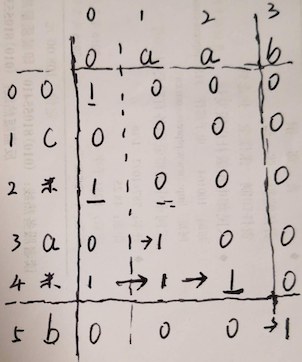 0 1 2 3
0 a a b
0 0 1 0 0 0
1 C 0 0 0 0
2 * 1 0 0 0
3 a 0 1→1 0 0
4 * 1 → 1 → 1 0
5 b 0 0 0 →1